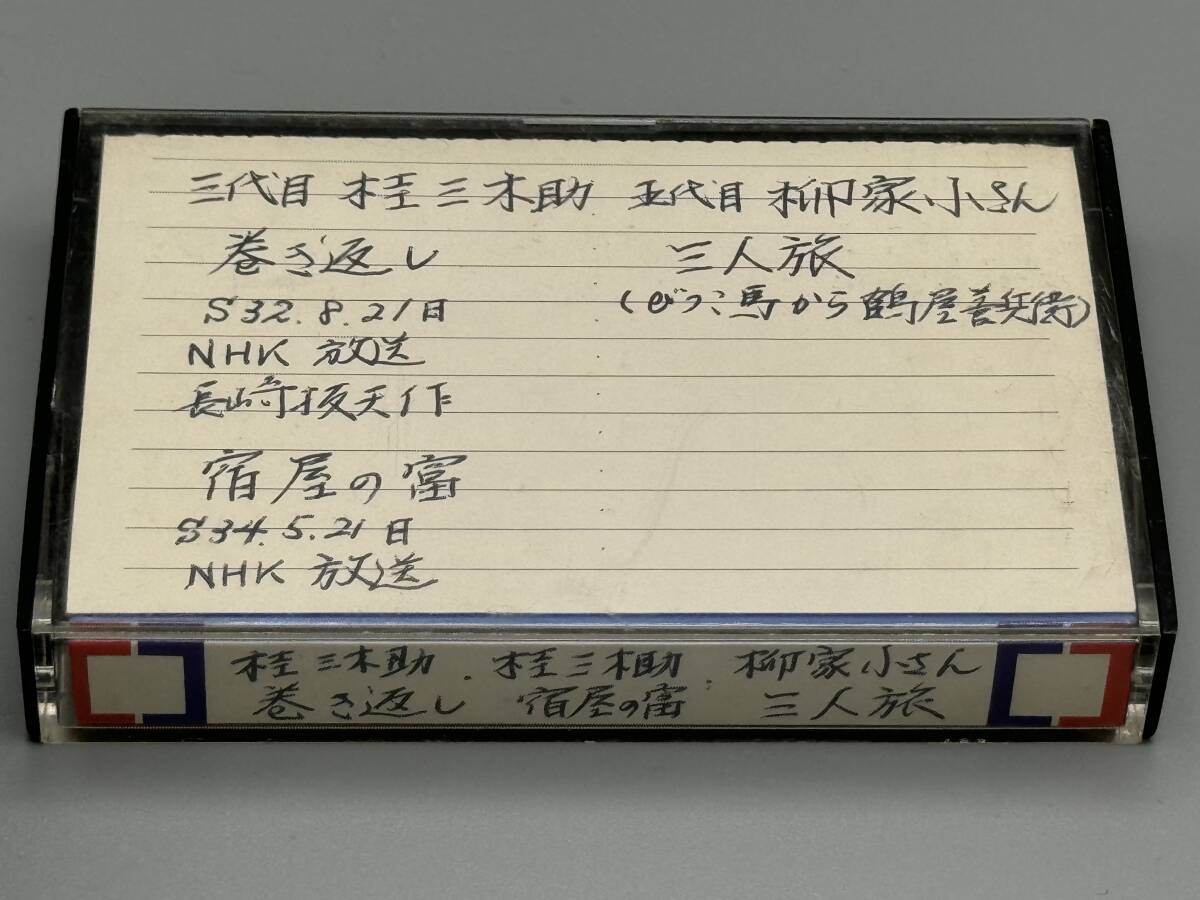 三代目 桂三木助 五代目 柳家小さん
巻き返し
三人旅
S32.8.21日
(びっこ馬から鶴屋善兵衛)
NHK 放送
長崎抜天作
宿屋の富
S34.5.21日
NHK 放送
桂三木助 . 桂三木助 . 柳家小さん
巻き返し 宿屋の富 三人旅